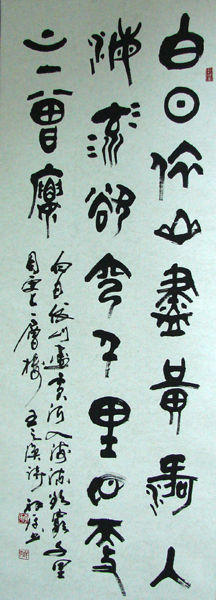 白日依山盡黃河入
海流欲窮千里目更
上一層樓
白日依山盡黃河入海流欲窮千里
目更上一層樓 王之渙詩 書